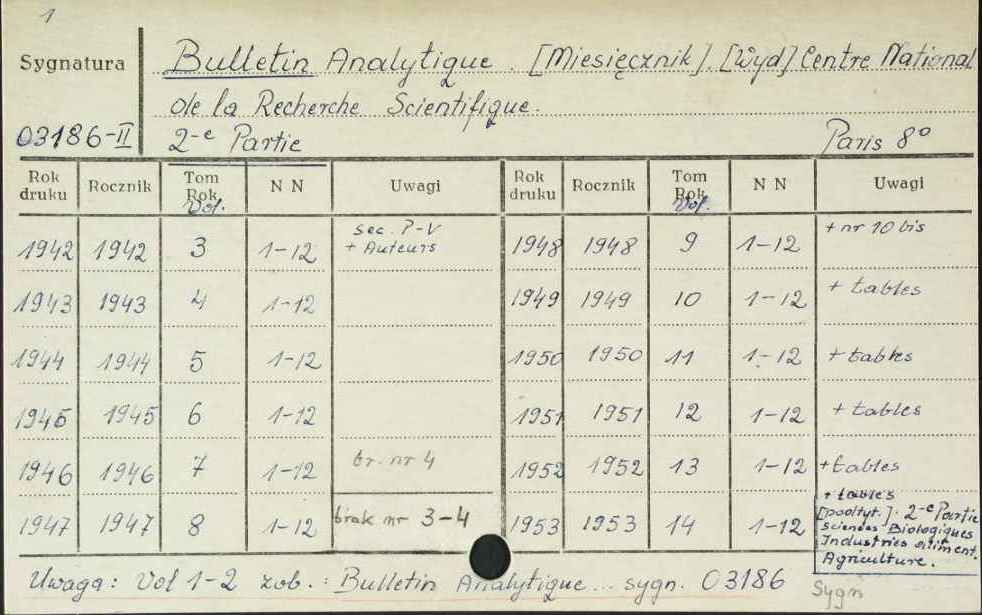 1
Sygnatura
Bulletin Analytique. [Miesięcznik]. [Wyd] Centre National
de la Recherche Scientifique.
03186-II
2-e Partie
Paris 8°
Rok druku Rocznik Tom Rok Vol. N N Uwagi Rok druku Rocznik Tom Rok Vol. N N Uwagi
1942 1942 3 1-12 sec. P-V + Auteurs 1948 1948 9 1-12 + nr 10 bis
1943 1943 4 1-12 1949 1949 10 1-12 + tables
1944 1944 5 1-12 1950 1950 11 1-12 + tables
1945 1945 6 1-12 1951 1951 12 1-12 + tables
1946 1946 7 1-12 br. nr 4 1952 1952 13 1-12 + tables
1947 1947 8 1-12 brak nr 3-4 1953 1953 14 1-12 + tables
[podtyt.]. 2-e Partie
Sciences Biologiques
Industries aliment.
Agriculture.
Uwaga: Vol 1-2 zob.: Bulletin Analytique... sygn. 03186
Sygn